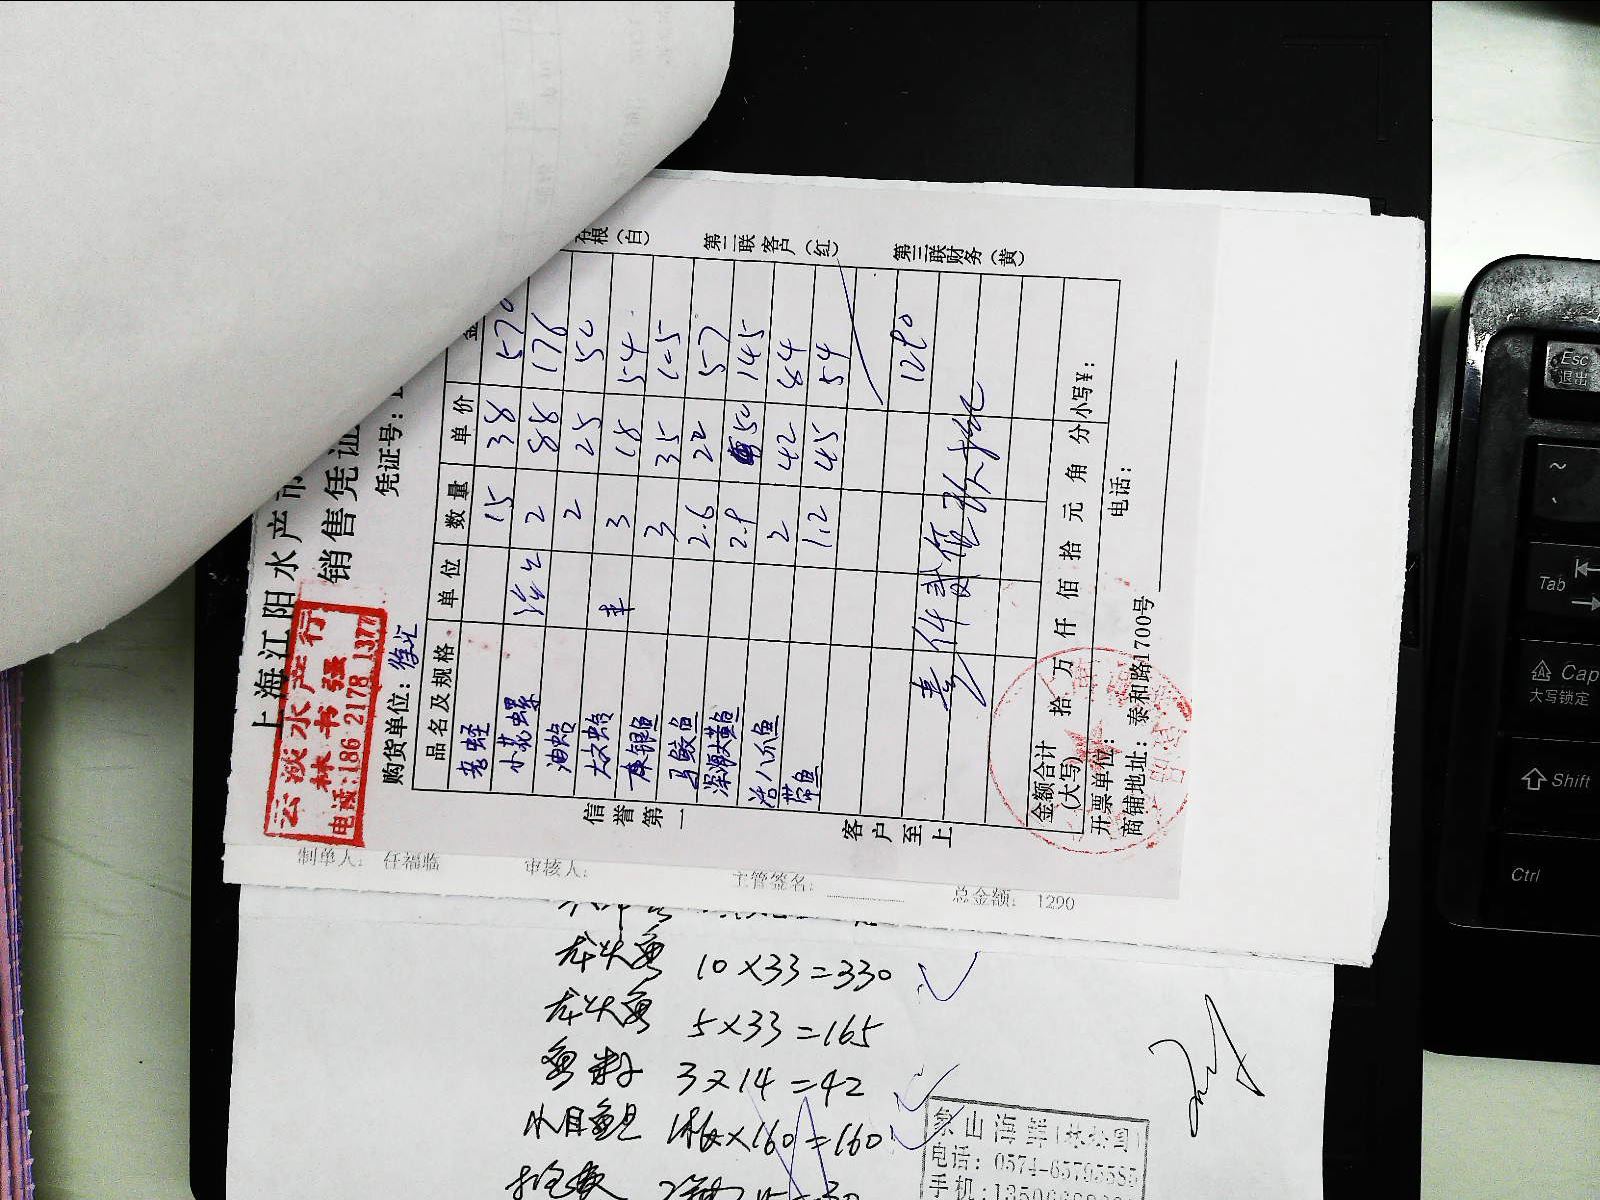 上海江阳水产市
销售凭证
凭证号:
云淡水产行
林书强
电话:186 2178 1377
购货单位: 徐汇
品名及规格 单位 数量 单价 金
老蛏 15 38 570
小花螺 2 88 176
油蛤 2 25 50
大文蛤 3 18 54
3 35 105
马鲛鱼 2.6 22 57
黄鱼 2.9 50 145
活八爪鱼 2 42 84
带鱼 1.2 45 54
1290
壹仟贰佰玖拾
金额合计(大写) 拾 万 仟 佰 拾 元 角 分 小写¥:
开票单位: 电话:
商铺地址: 泰和路1700号
信誉第一
客户至上
根(白)
第二联客户(红)
第三联财务(黄)
制单人: 任福临 审核人: 主管签名: 总金额: 1290
龙头鱼 10×33=330
龙头鱼 5×33=165
3×14=42
×160=160
象山
电话: 0574-65795585
手机:
Esc
退出
~
Tab
Cap
大写锁定
Shift
Ctrl